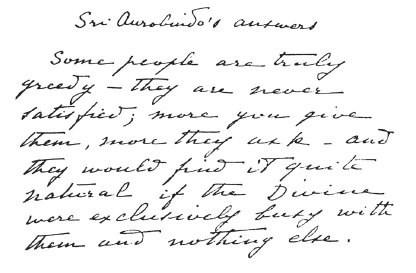 Sri Aurobindo's answers
Some people are truly
greedy – they are never
satisfied; more you give
them, more they ask – and
they would find it quite
natural if the Divine
were exclusively busy with
them and nothing else.